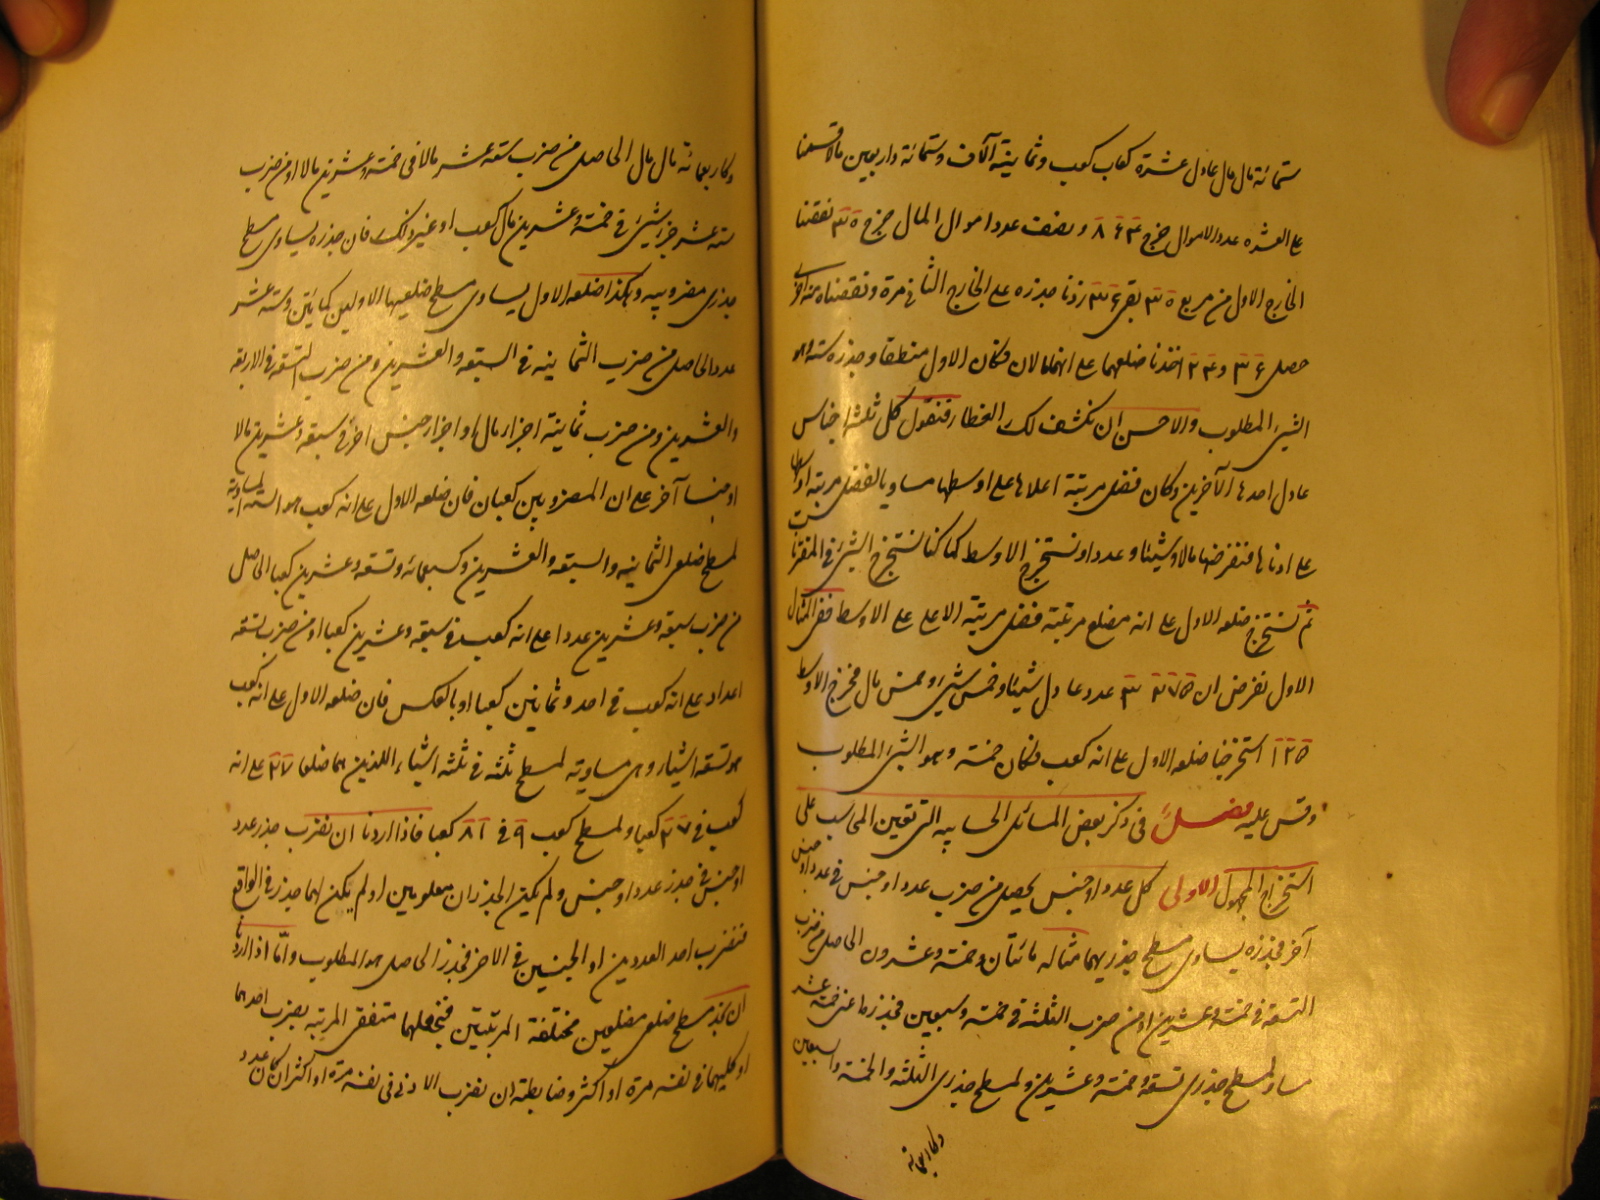 ستمائة مال مال عادل عشرة كعاب كعب وثمانية آلاف وستمائة واربعين مالا قسمنا
على العشرة عدد الاموال خرج ٨٦٤ ونصف عدد اموال المال خرج ٣٠ نقصنا
الخارج الاول من مربع ٣٠ بقى ٣٦ زدنا جذره على الخارج الثانى مرة ونقصناه منه اخرى
حصل ٣٦ و ٢٤ اخذنا ضلعهما على انهما مالان فكان الاول منطقا وجذره ستة وهو
الشىء المطلوب والاحسن ان نكشف لك الغطا فنقول كل ثلثة اجناس
عادل احدها الآخرين وكان فضل مرتبة اعلاها على اوسطها مساويا لفضل مرتبة اوسطها
على ادناها فنفرضها مالا وشيئا وعددا ونستخرج الاوسط كما كنا نستخرج الشىء فى المفردات
ثم نستخرج ضلعه الاول على انه مضلع مرتبته فضل مرتبة الاعلى على الاوسط ففى المثال
الاول نفرض ان ٣٣٧٥ عدد عادل شيئا وخمس شىء وخمس مال فخرج الاوسط
١٢٥ استخرجنا ضلعه الاول على انه كعب فكان خمسة وهو الشىء المطلوب
وقس عليه فصل فى ذكر بعض المسائل الحسابيه التى تعين المحاسب على
استخراج المجهول الاولى كل عدد او جنس يحصل من ضرب عدد او جنس فى عدد او جنس
آخر فجذره يساوى مسطح جذريهما مثاله مائتان وخمسة وعشرون الحاصل من ضرب
التسعة فى خمسة وعشرين او من ضرب الثلثة فى خمسة وسبعين فجذرها اعنى خمسة عشر
مساو لمسطح جذرى تسعة وخمسة وعشرين ولمسطح جذرى الثلثة والخمسة والسبعين
وكاربعمائة
وكاربعمائة مال مال الحاصل من ضرب ستة عشر مالا فى خمسة وعشرين مالا او من ضرب
ستة عشر جزء شىء فى خمسة وعشرين مال كعب او غير ذلك فان جذره يساوى مسطح
جذرى مضروبيه وهكذا ضلعه الاول يساوى مسطح ضلعيهما الاولين كمائتين وستة عشر
عددا الحاصل من ضرب الثمانيه فى السبعه والعشرين ومن ضرب التسعة فى الاربعة
والعشرين ومن ضرب ثمانية اجزاء مال او اجزاء جنس آخر فى سبعة وعشرين مالا
او جنسا آخر على ان المضروبين كعبان فان ضلعه الاول على انه كعب هو الستة المساوية
لمسطح ضلعى الثمانيه والسبعه والعشرين وكسبعمائه وتسعة وعشرين كعبا الحاصل
من ضرب سبعة وعشرين عددا على انه كعب فى سبعة وعشرين كعبا او من ضرب تسعة
اعداد على انه كعب فى احد وثمانين كعبا او بالعكس فان ضلعه الاول على انه كعب
هو تسعة اشياء وهى مساوية لمسطح ثلثه فى ثلثة اشياء اللذين هما ضلعا ٢٧ على انه
كعب فى ٢٧ كعبا ولمسطح كعب ٩ فى ٨١ كعبا فاذا اردنا ان نضرب جذر عدد
او جنس فى جذر عدد او جنس ولم يكن الجذران معلومين او لم يكن لهما جذر فى الواقع
فنضرب احد العددين او الجنسين فى الآخر فجذر الحاصل هو المطلوب واما اذا اردنا
ان نجد مسطح ضلعى مضلعين مختلفة المرتبتين فنجعلهما متفقى المرتبه بضرب احدهما
او كليهما فى نفسه مرة او اكثر وضابطته ان نضرب الادنى فى نفسه مرة او اكثر ان كان عدد